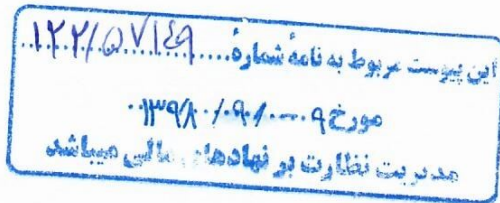 این پیوست مربوط به نامهٔ شمارهٔ.....۱۲۲/۵۷۱۴۹
مورخ ۰۹/۰۹/۱۳۹۸
مدیریت نظارت بر نهادهای مالی میباشد